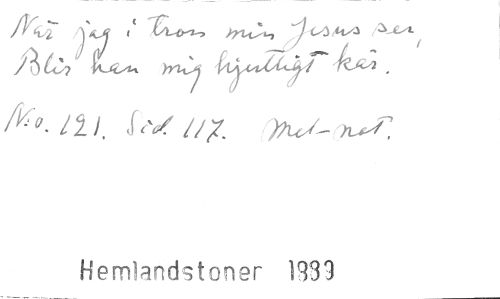 När jag i tron min Jesus ser,
Blir han mig hjertligt kär.
N:o. 121. Sid. 117. Mel-not.
Hemlandstoner 1889